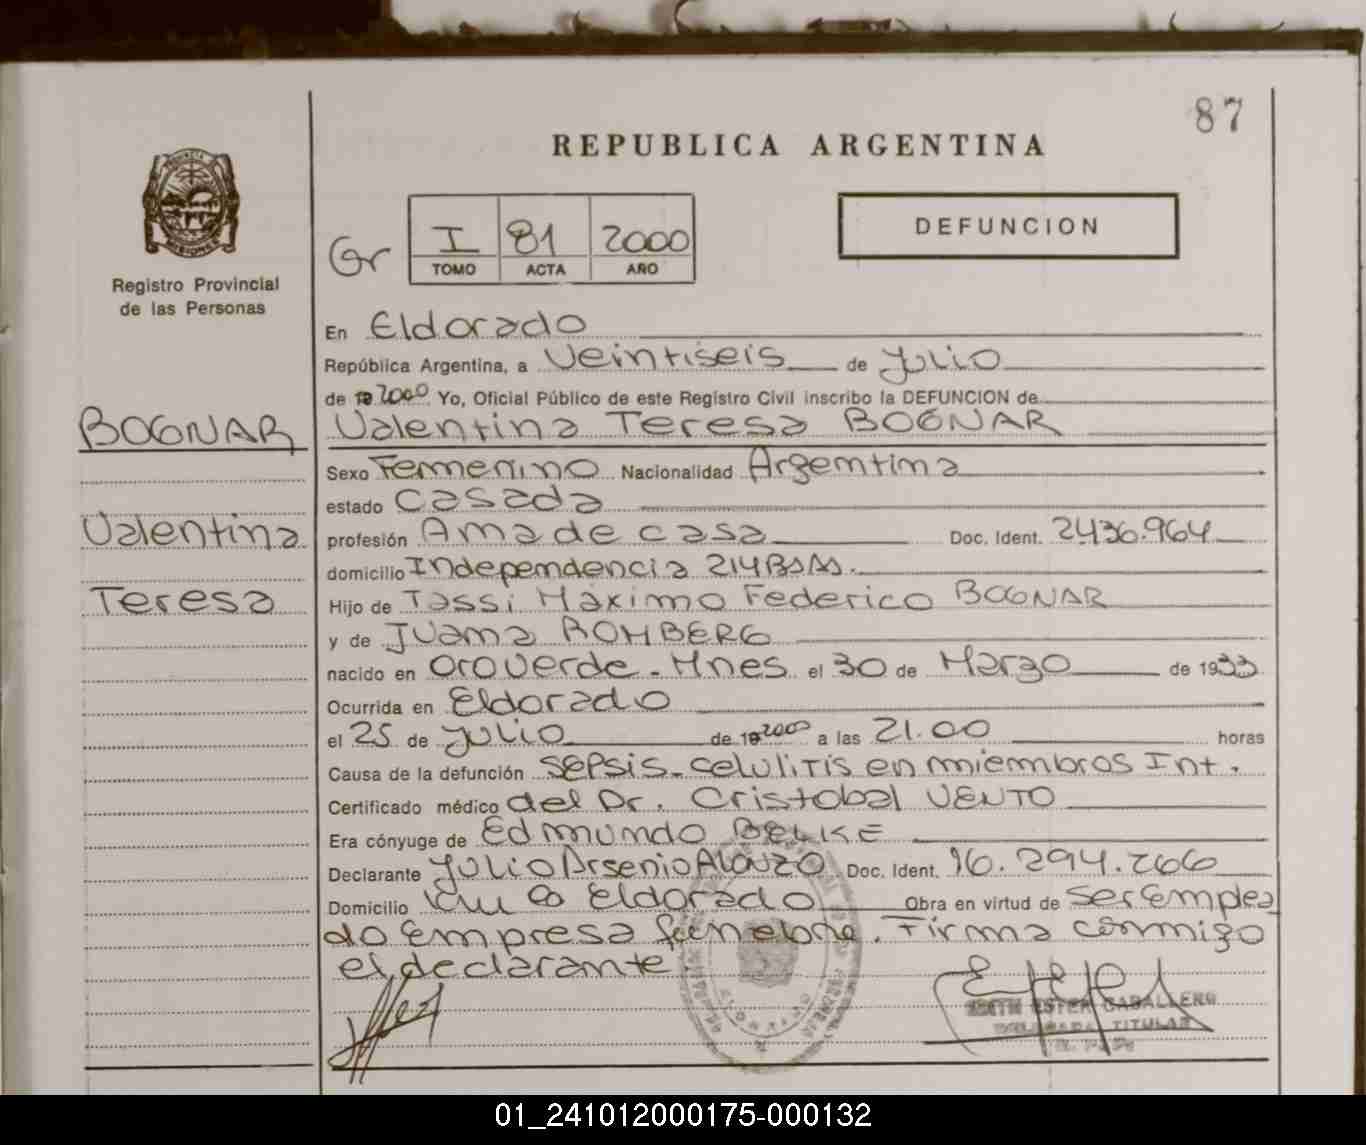 87
REPUBLICA ARGENTINA
PROVINCIA
MISIONES
Registro Provincial
de las Personas
DEFUNCION
Gr I 81 2000
TOMO ACTA AÑO
En Eldorado
República Argentina, a Veintiseis de Julio
de 19 2000 Yo, Oficial Público de este Registro Civil inscribo la DEFUNCION de
BOGNAR
Valentina
Teresa
Valentina Teresa BOGNAR
Sexo Femenino Nacionalidad Argentina
estado Casada
profesión Ama de casa Doc. Ident. 2.436.964
domicilio Independencia 214 BsAs.
Hijo de Tassi Máximo Federico BOGNAR
y de Juana ROMBERG
nacido en Oro Verde - Mnes el 30 de Marzo de 1933
Ocurrida en Eldorado
el 25 de Julio de 19 2000 a las 21.00 horas
Causa de la defunción Sepsis - celulitis en miembros Inf.
Certificado médico del Dr. Cristobal VENTO
Era cónyuge de Edmundo BELKE
Declarante Julio Arsenio Alonzo Doc. Ident. 16.294.266
Domicilio Eldorado Obra en virtud de ser emplea
do Empresa funebre. Firma conmigo
el declarante
EDITH ESTER CABALLERO
DELEGADA TITULAR
R. P. P.
ELDORADO
01_241012000175-000132